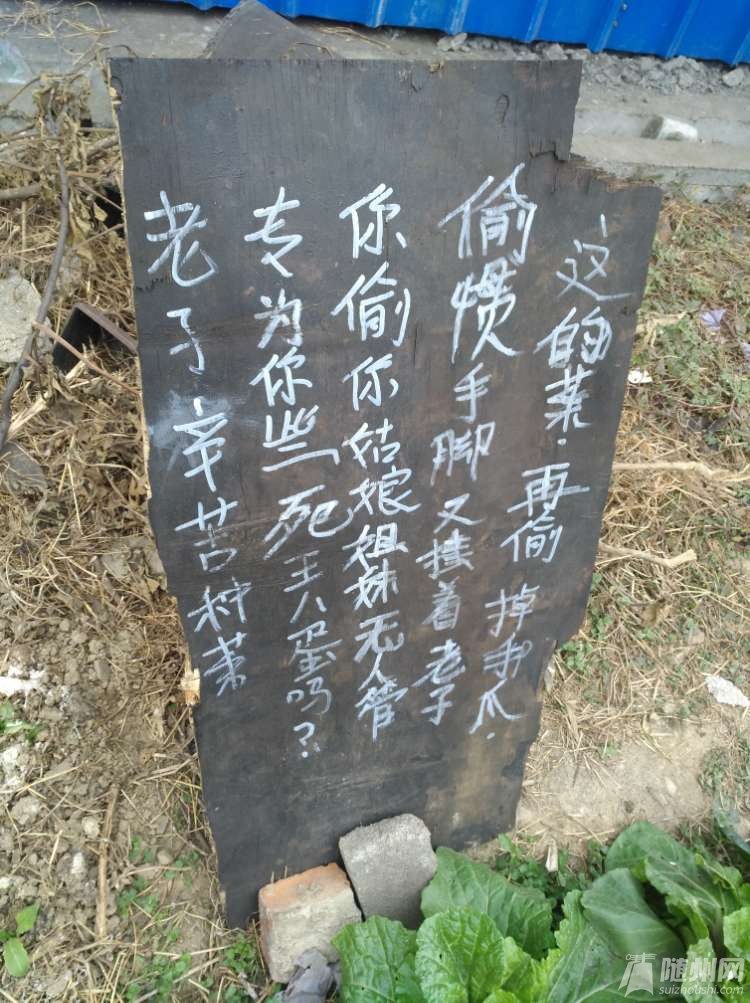 老子辛苦种菜
专为你些死王八蛋吗?
你偷你姑娘姐妹无人管
偷惯手脚又挂着老子
这的菜.再偷掉手爪.
随州网
suizhoushi.com